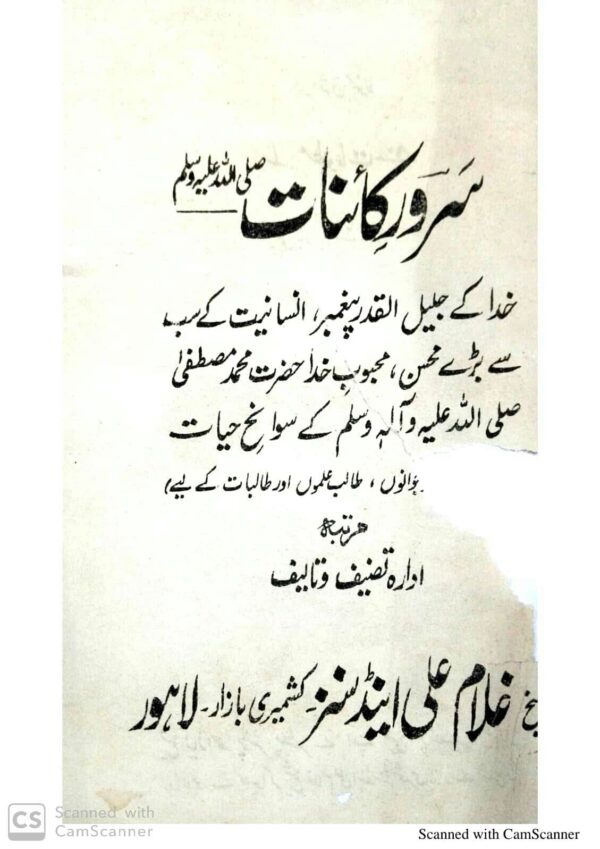 سرورِ کائنات صلی اللہ علیہ وسلم
خدا کے جلیل القدر پیغمبر، انسانیت کے سب
سے بڑے محسن، محبوبِ خدا حضرت محمد مصطفیٰ
صلی اللہ علیہ وآلہٖ وسلم کے سوانحِ حیات
طالب علموں اور طالبات کے لیے)
مرتبہ
ادارہ تصنیف و تالیف
غلام علی اینڈ سنز۔ کشمیری بازار۔ لاہور
CS Scanned with
CamScanner
Scanned with CamScanner